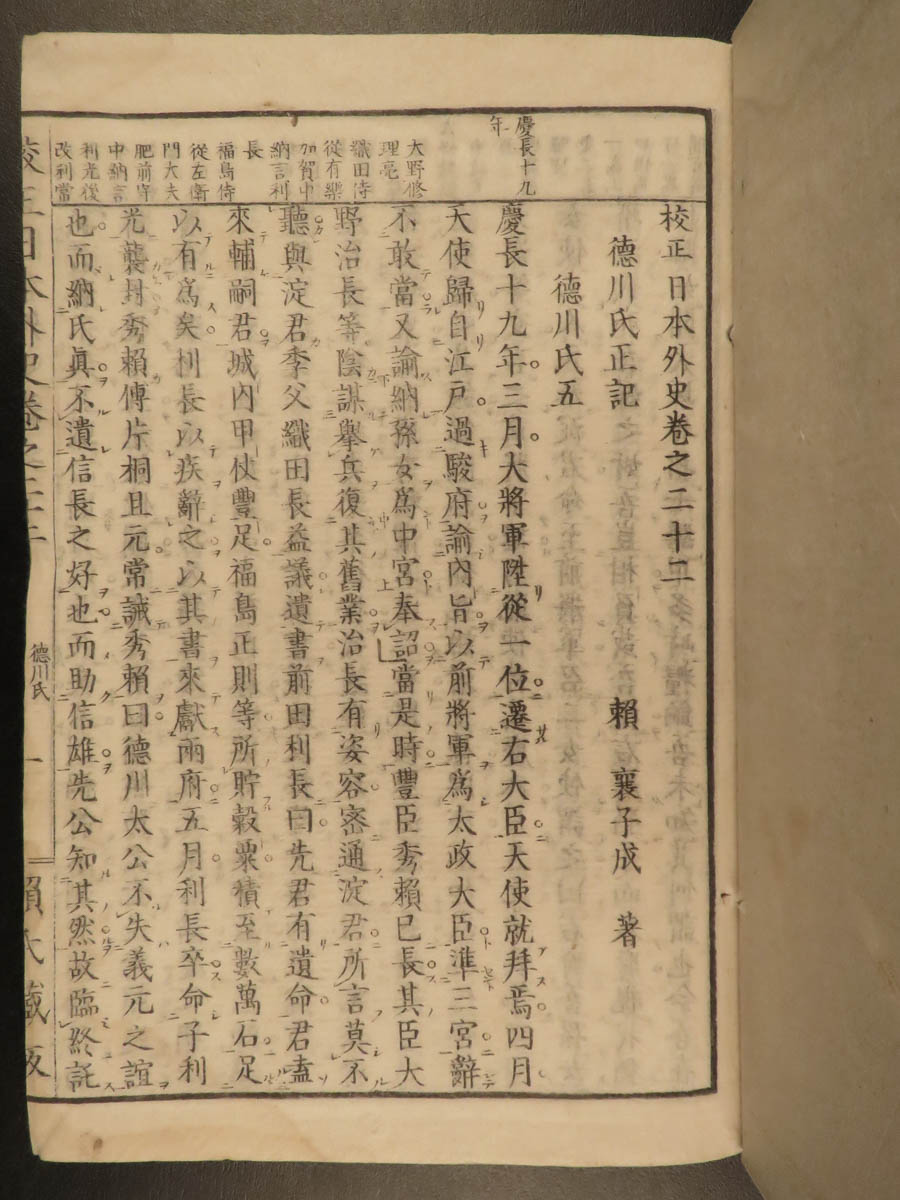 慶長十九
年
大野修
理亮
織田侍
從有樂
加賀中
納言利
長
福島侍
從左衛
門大夫
肥前守
中納言
利光後
改利常
校正日本外史卷之二十二
德川氏正記　賴襄子成　著
德川氏五
慶長十九年三月大將軍陞從一位遷右大臣天使就拜焉四月
天使歸自江戶過駿府論內旨以前將軍爲太政大臣準三宮辭
不敢當又論納孫女爲中宮奉詔當是時豐臣秀賴已長其臣大
野治長等陰謀擧兵復其舊業治長有姿容密通淀君所言莫不
聽與淀君季父織田長益議遺書前田利長曰先君有遺命君盍
來輔嗣君城內甲仗豐足福島正則等所貯穀粟積至數萬石足
以有爲矣利長以疾辭之以其書來獻兩府五月利長卒命子利
光襲封秀賴傅片桐且元常誡秀賴曰德川太公不失義元之誼
也而納氏眞不遺信長之好也而助信雄先公知其然故臨終託
校正日本外史卷之二十二
德川氏
一
賴氏藏版